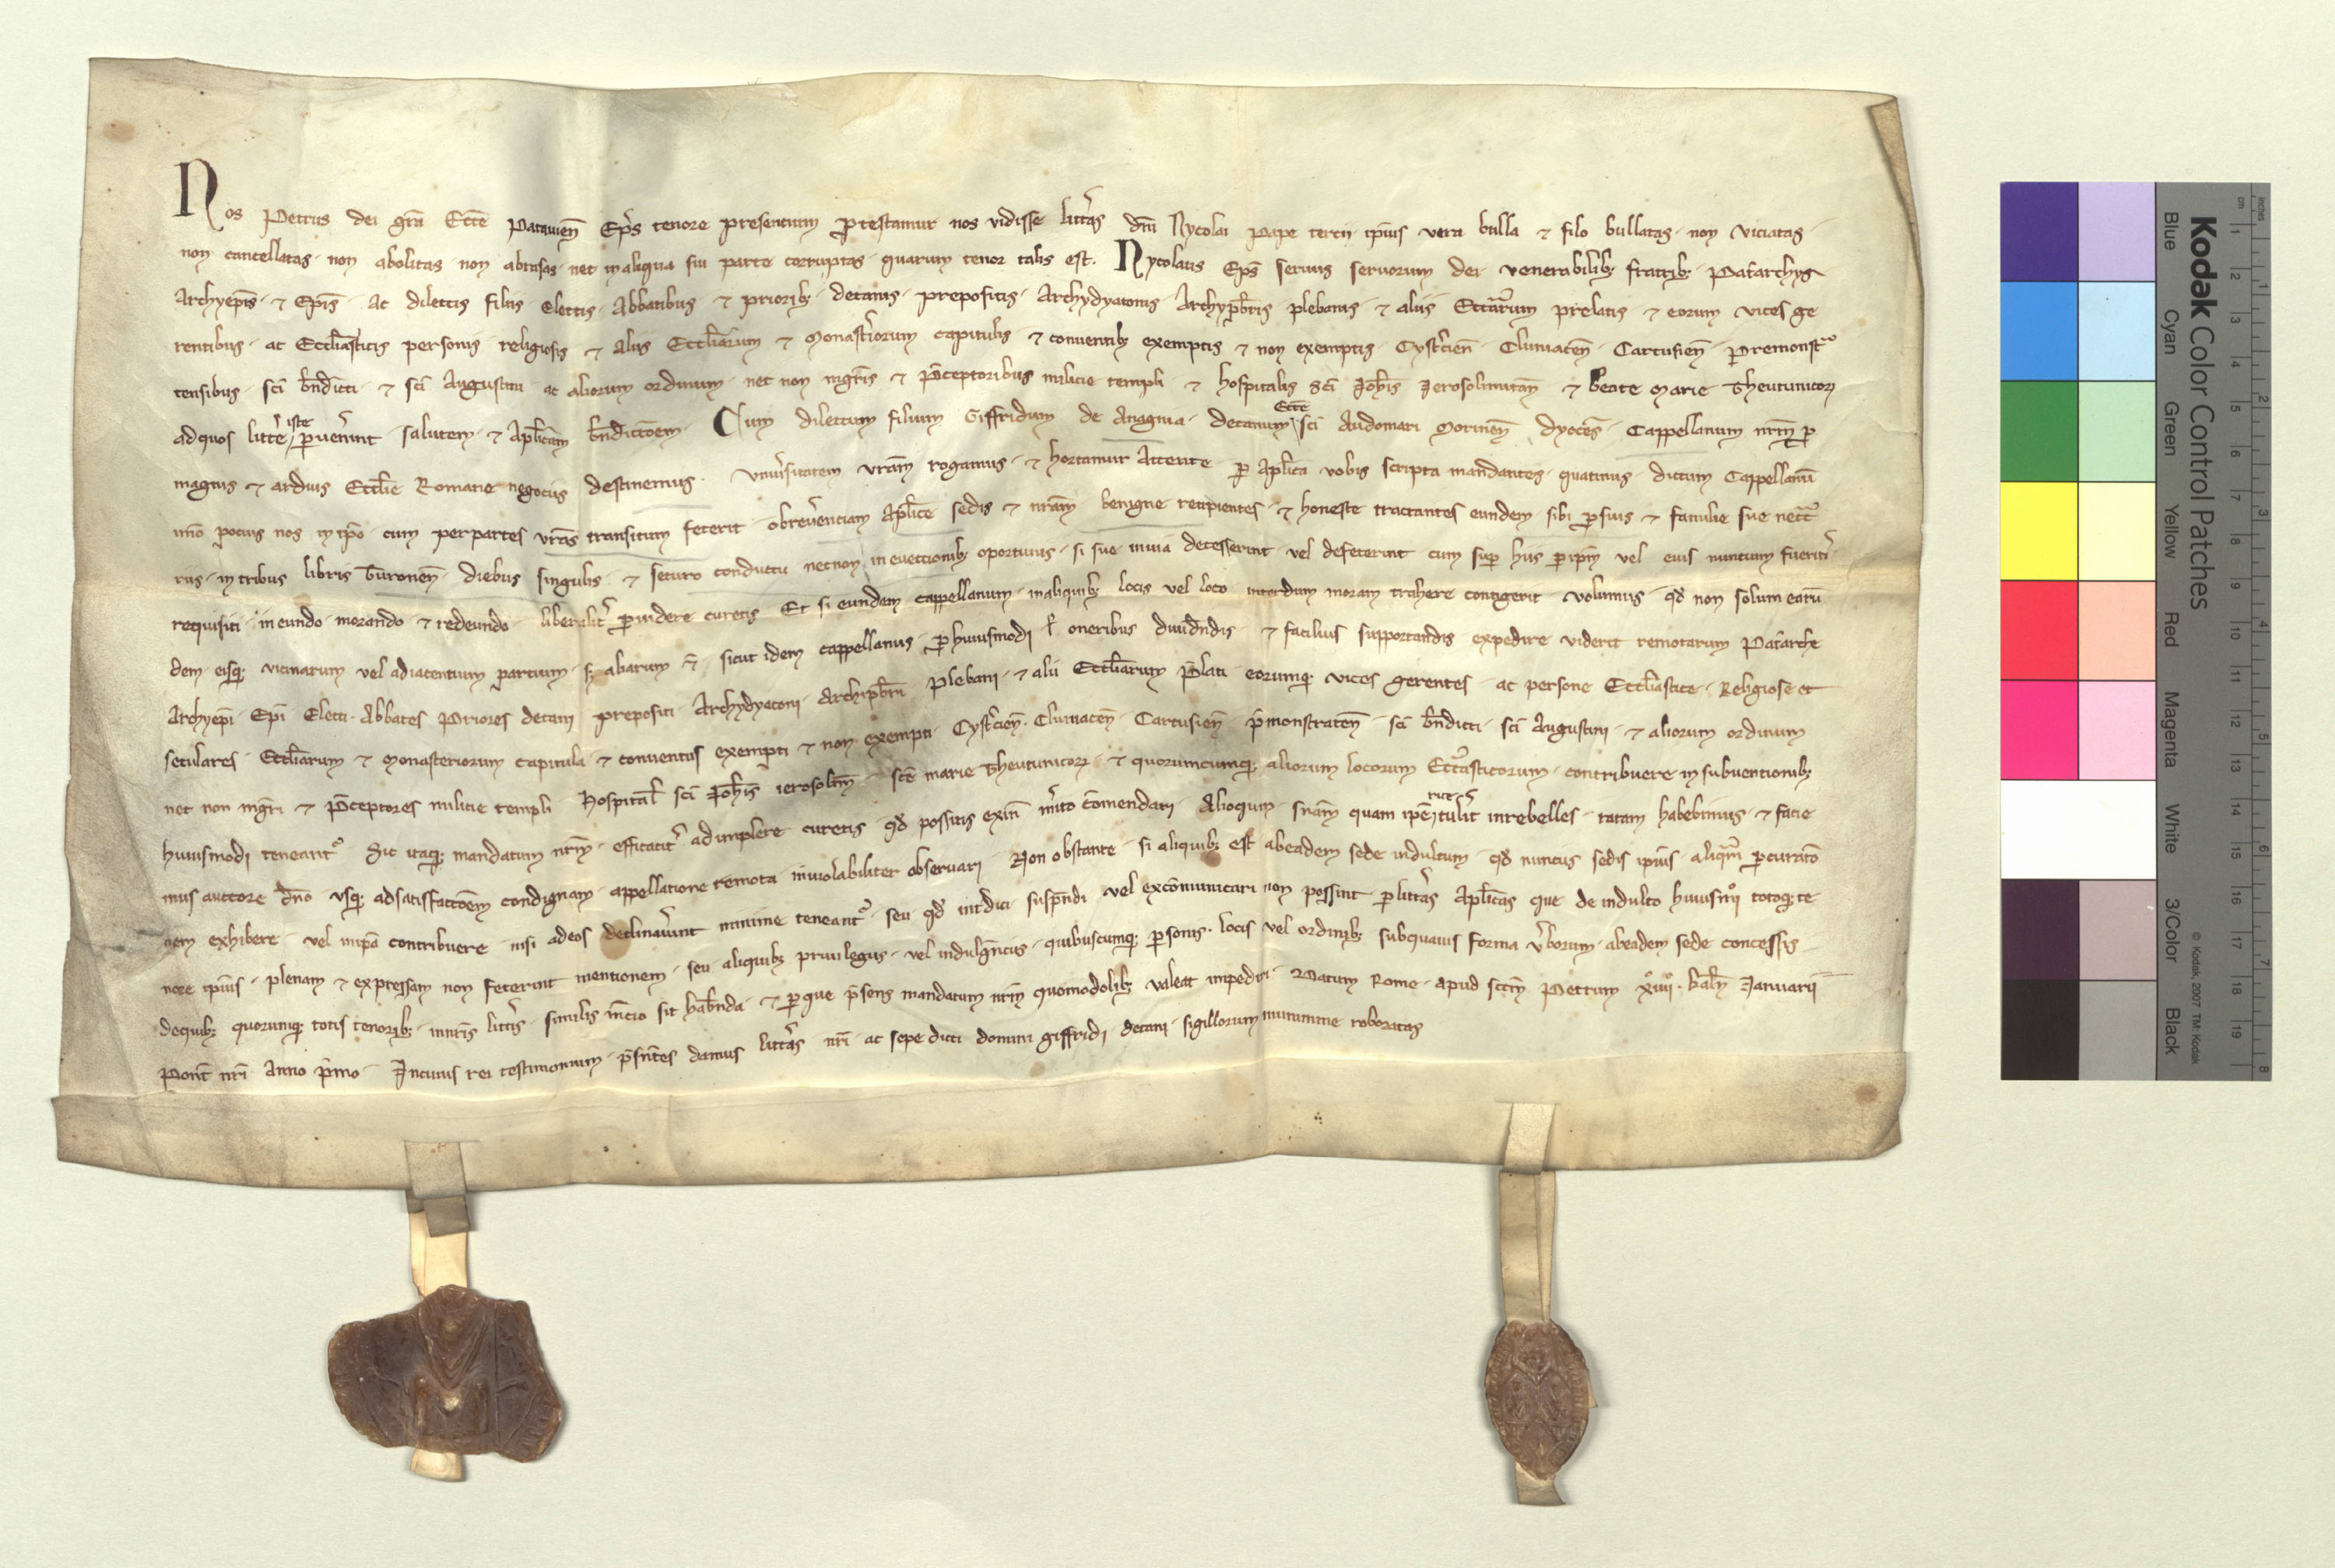 Nos Petrus dei gr̄a Ecc̄e Patauien̄ Ep̄s tenore presentium protestamur nos vidisse litt̄as dn̄i Nycolai pape tercii ipius vera bulla ⁊ filo bullatas · non viciatas ·
non cancellatas · non abolitas · non abrasas · nec in aliqua sui parte corruptas · quarum tenor talis est · Nycolaus Ep̄s seruus seruorum dei venerabilib; fratrib; Pat̄archys
Archyep̄is · ⁊ Ep̄is · ac dilectis filiis Electis · Abbatibus ⁊ priorib; · decanis · prepositis · Archydyaconis · Archypb̄ris · plebanis · ⁊ aliis Eccl̄arum prelatis ⁊ eorum vices ge
rentibus · ac Eccl̄iasticis personis religiosis ⁊ aliis Eccl̄iarum ⁊ Monast̄iorum capitulis ⁊ conuentib; exemptis ⁊ non exemptis · Cyst̄cien̄ · Cluniacen̄ · Cartusien̄ · Premonstᵃ
tensibus · sc̄i bn̄dicti · ⁊ sc̄i Augustini · ac aliorum ordinum · nec non mgr̄is ⁊ p̄ceptoribus milicie templi ⁊ hospitalis sc̄i Joh̄is Jerosolimitan̄ ⁊ beate Marie Theutunicor̄
ad quos litt̄e iste peruen̄int salutem ⁊ apl̄icam bn̄dictōem · Cum dilectum filium Giffridum de Anagnia · decanum Ecc̄e sc̄i Audomari Morinen̄ dyoces̄ · Cappellanum nr̄m p̄
magnis ⁊ arduis Eccl̄ie Romane negociis destinemus · Vniu̓sitatem vr̄am rogamus · ⁊ hortamur attente p̄ apl̄ica vobis scripta mandantes · quatinus · dictum Cappellanū
imō pocius nos in ip̄o · cum per partes vr̄as transitum fecerit · ob reu̓enciam apl̄ice sedis ⁊ nr̄am benigne recipientes · ⁊ honeste tractantes eundem sibi p̄ suis ⁊ familie sue necc̄
riis · in tribus libris Turonen̄ diebus singulis · ⁊ securo conductu necnon in euectionib; oportunis · si sue in uia decesserint vel defecerint cum sup̄ hiis p̄ ip̄m vel eius nuncium fuerit̄
requisiti · in eundo · morando · ⁊ redeundo · liberalit̄ p̄uidere curetis Et si eundem cappellanum · in aliquib; locis vel loco interdum moram trahere contigerit · volumus · qd̄ non solum earū
dem · eisq; vicinarum vel adiacentium partium · s; aliarum ⁊ sicut idem cappellanus p̄ huiusmodi oneribus diuid̄ndis · ⁊ facilius supportandis expedire viderit remotarum Pat̄arche
Archyep̄i · Ep̄i Electi · Abbates Priores decani prepositi Archydyaconi Archipb̄ri plebani · ⁊ alii Eccl̄iarum p̄lati eorumq; vices gerentes · ac persone Eccl̄iastice · Religiose et
seculares · Eccl̄iarum ⁊ Monasteriorum capitula ⁊ conuentus exempti ⁊ non exempti Cyst̄cien̄ · Cluniacen̄ · Cartusien̄ · p̄monstraten̄ · sc̄i bn̄dicti · sc̄i Augustini · ⁊ aliorum ordinum
nec non mgr̄i ⁊ p̄ceptores milicie templi · Hospital̄ sc̄i Joh̄is ierosolim̄ · sc̄e marie Theutunicor̄ · ⁊ quorumcumq; aliorum locorum Ecc̄asticorum · contribuere in subuentionib;
huiusmodi teneant̄ · Sic itaq; mandatum nr̄m · efficacit̄ adimplere curetis · qd̄ possitis exin̄ m̄ito cōmendari · Alioquin · sn̄iam quam ipe rite tulit̄ in rebelles · ratam habebimus · ⁊ facie
mus auctore dn̄o vsq; ad satisfactōem condignam · appellatione remota inuiolabiliter obseruari · Non obstante · si aliquib; est ab eadem sede indultum · qd̄ nuncius sedis ipius · aliqᵃm p̄curatō
nem exhibere · vel in ip̄a contribuere · nisi ad eos declinau̓int minime teneant̄ · seu qd̄ int̄dici susp̄ndi vel excōmunicari non possint p̄ litt̄as apl̄icas que de indulto huiusm̄i totoq; te
nore ipius · plenam ⁊ expressam non fecerint mentionem · seu aliquib; priuilegiis · vel indulḡnciis · quibuscumq; p̄sonis · locis vel ordinib; sub quauis forma v̄borum · ab eadem sede concessis ·
de quib; quorumq; totis tenorib; · in nr̄is litt̄is · similis m̄cio sit hab̄nda · ⁊ p̄ que p̄sens mandatum nr̄m quomodolib; valeat impediri · Datum Rome · apud sc̄m Petrum xiiii · kal̄ Januarii
Pont̄ nr̄i Anno p̄mo · In cuius rei testimonium · p̄sn̄tes damus litt̄as nr̄i · ac sepe dicti domini giffridi decani · sigillorum munimine roboratas
Kodak Color Control Patches
© Kodak, 2007 TM: Kodak
Blue Cyan Green Yellow Red Magenta White 3/Color Black
cm 1 2 3 4 5 6 7 8 9 10 11 12 13 14 15 16 17 18 19
inches 1 2 3 4 5 6 7 8